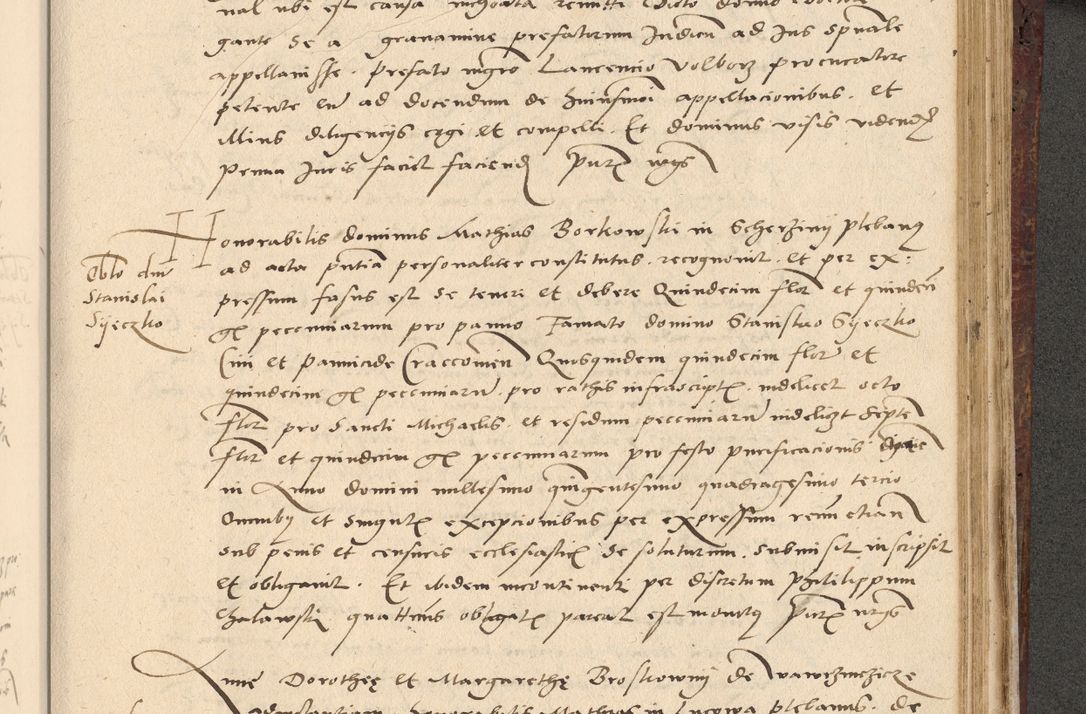 nal ubi est causa inchoata remitti dicto domino
gante se a gravamine prefatorum Judicum ad Jus spuale
appellavisse. prefato mgro Laurencio Volborz procuratore
petente eum ad docendum de huiusmoi appellacionibus. et
illius diligencijs cogi et compelli. Et dominus visis videndis
penna Juris faciet faciend pntibus
Honorabilis dominus Mathias Borkowski in Scherziny plebanus
ad acta pntia personaliter constitutus. recognovit. et per ex:
pressum fassus est se teneri et debere Quindecim flor et quindecim
gr pecuniarum pro panno Famato domino Stanislao Syeczko
Civi et pannicide Cracovien Quosquidem quindecim flor et
quindecim gr pecuniarum. pro rathis infrascriptis. videlicet octo
flor pro Sancti Michaelis. et residuum pecuniarum videlicet septem
flor et quindecim gr pecuniarum pro festo purificacionis
in Anno domini millesimo quingentesimo quadragesimo tercio.
Omnibus et singulis excepcionibus per expressum renuncians
sub penis et censuris ecclesiasticis se soluturum. submisit inscripsit
et obligavit. Et ibidem incontinenti per discretum Philippum
Chalawski quattinus obligatis pareat est monitus pntibus
Oblo dni
Stanislai
Syeczko
Anne Dorothee et Margarethe Broskowny de
honorabilis Mathias in Lucowa plebanus. de